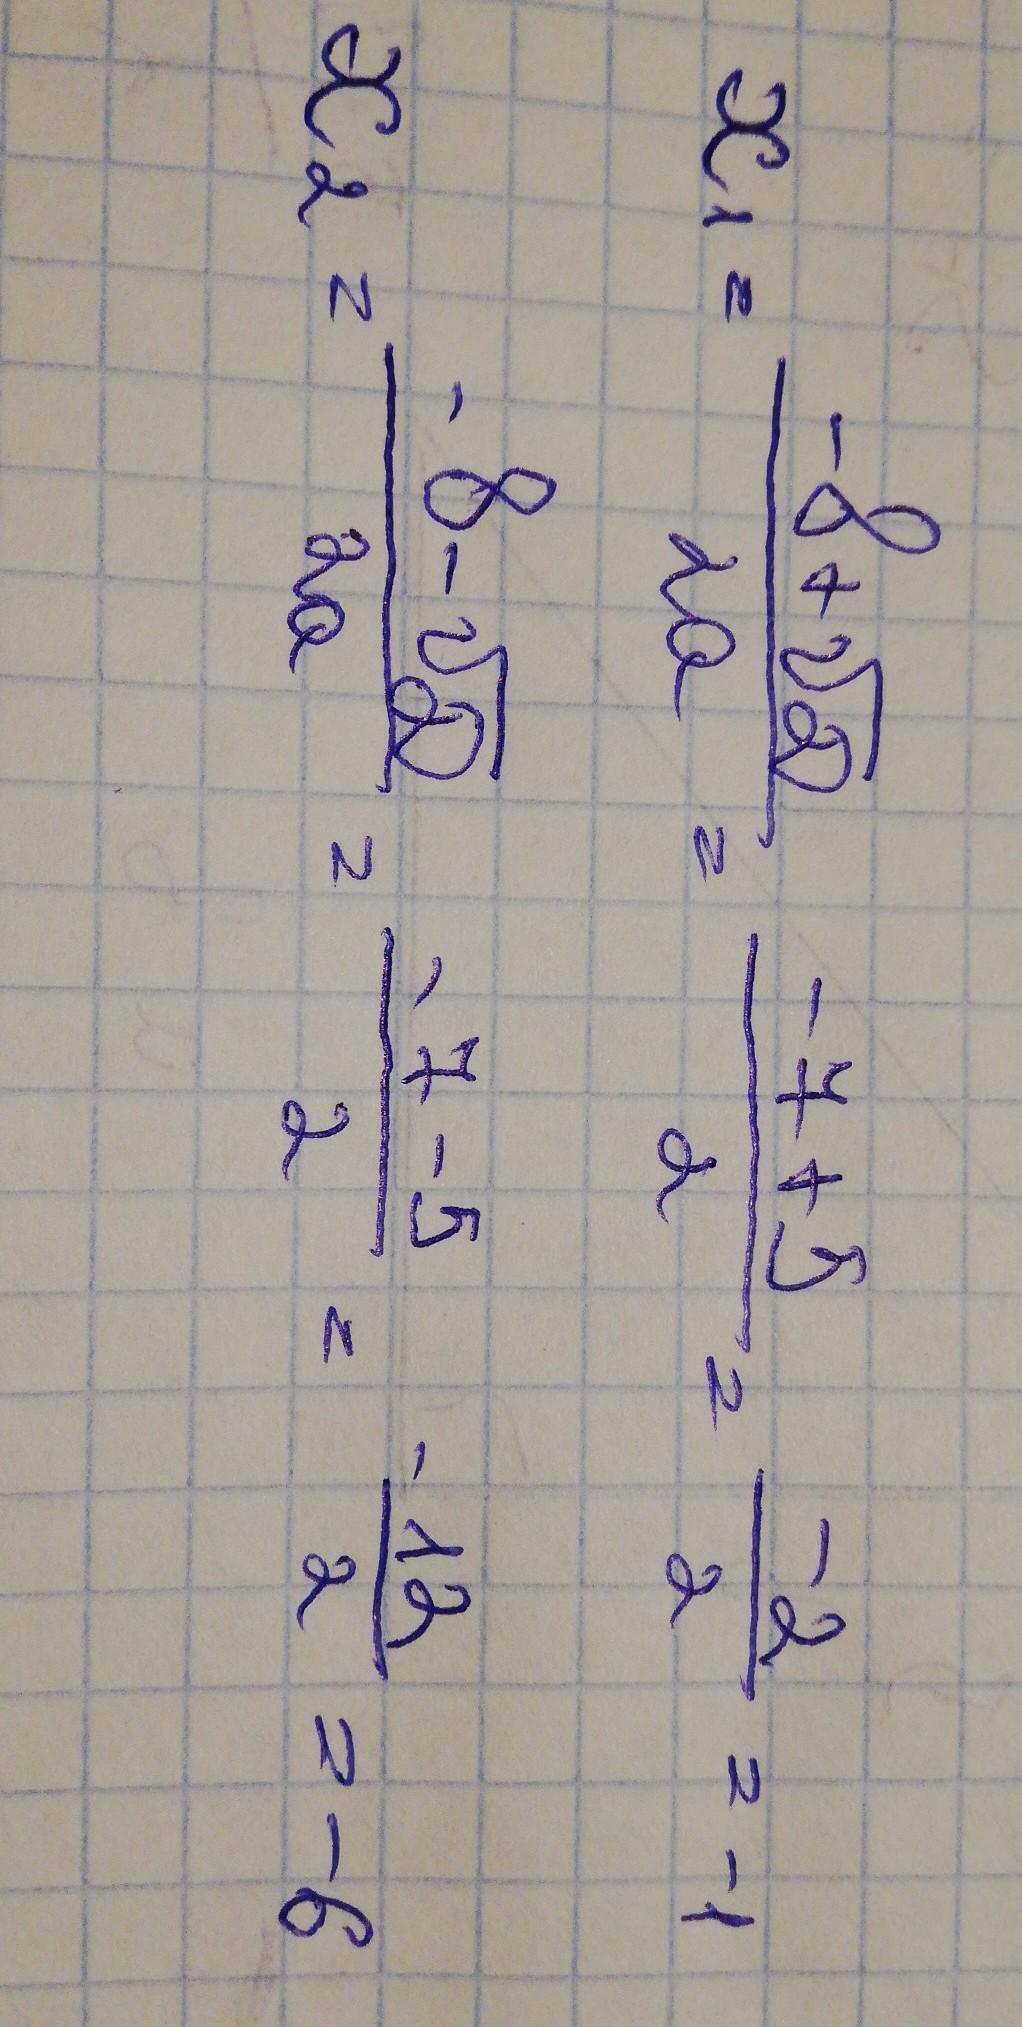 x₁ = (-b + √D)/2a = (-7 + 5)/2 = -2/2 = -1
x₂ = (-b - √D)/2a = (-7 - 5)/2 = -12/2 = -6